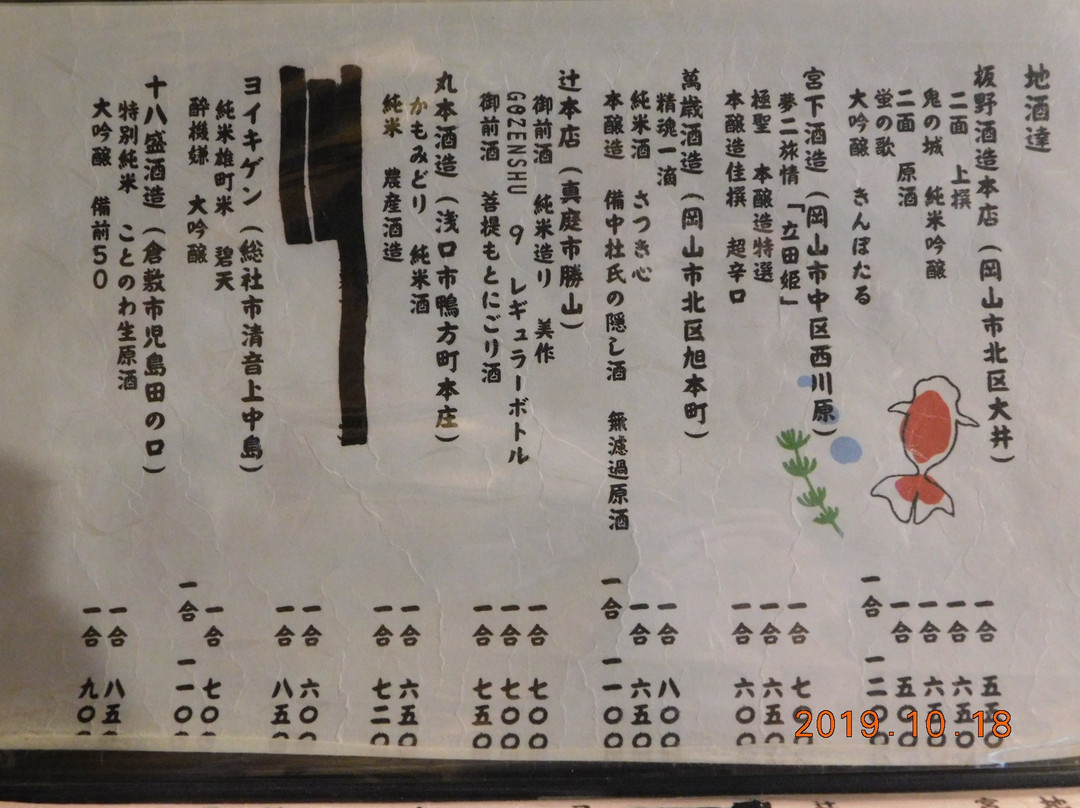 地酒達
板野酒造本店（岡山市北区大井）
二面 上撰 一合 五五〇
鬼の城 純米吟醸 一合 六五〇
二面 原酒 一合 六五〇
蛍の歌 一合 五〇〇
大吟醸 きんぼたる 一合 一二〇〇
宮下酒造（岡山市中区西川原）
夢二旅情「立田姫」 一合 七〇〇
極聖 本醸造特選 一合 六五〇
本醸造佳撰 超辛口 一合 六〇〇
萬歳酒造（岡山市北区旭本町）
精魂一滴 一合 八〇〇
純米酒 さつき心 一合 六五〇
本醸造 備中杜氏の隠し酒 無濾過原酒 一合 一一〇〇
辻本店（真庭市勝山）
御前酒 純米造り 美作 一合 七〇〇
GOZENSHU 9 レギュラーボトル 一合 七〇〇
御前酒 菩提もとにごり酒 一合 七五〇
丸本酒造（浅口市鴨方町本庄）
かもみどり 純米酒 一合 六五〇
純米 農産酒造 一合 七二〇
一合 六〇〇
一合 八五〇
ヨイキゲン（総社市清音上中島）
純米雄町米 碧天 一合 七〇〇
酔機嫌 大吟醸 一合 一一〇〇
十八盛酒造（倉敷市児島田の口）
特別純米 ことのわ生原酒 一合 八五〇
大吟醸 備前50 一合 九〇〇
2019.10.18